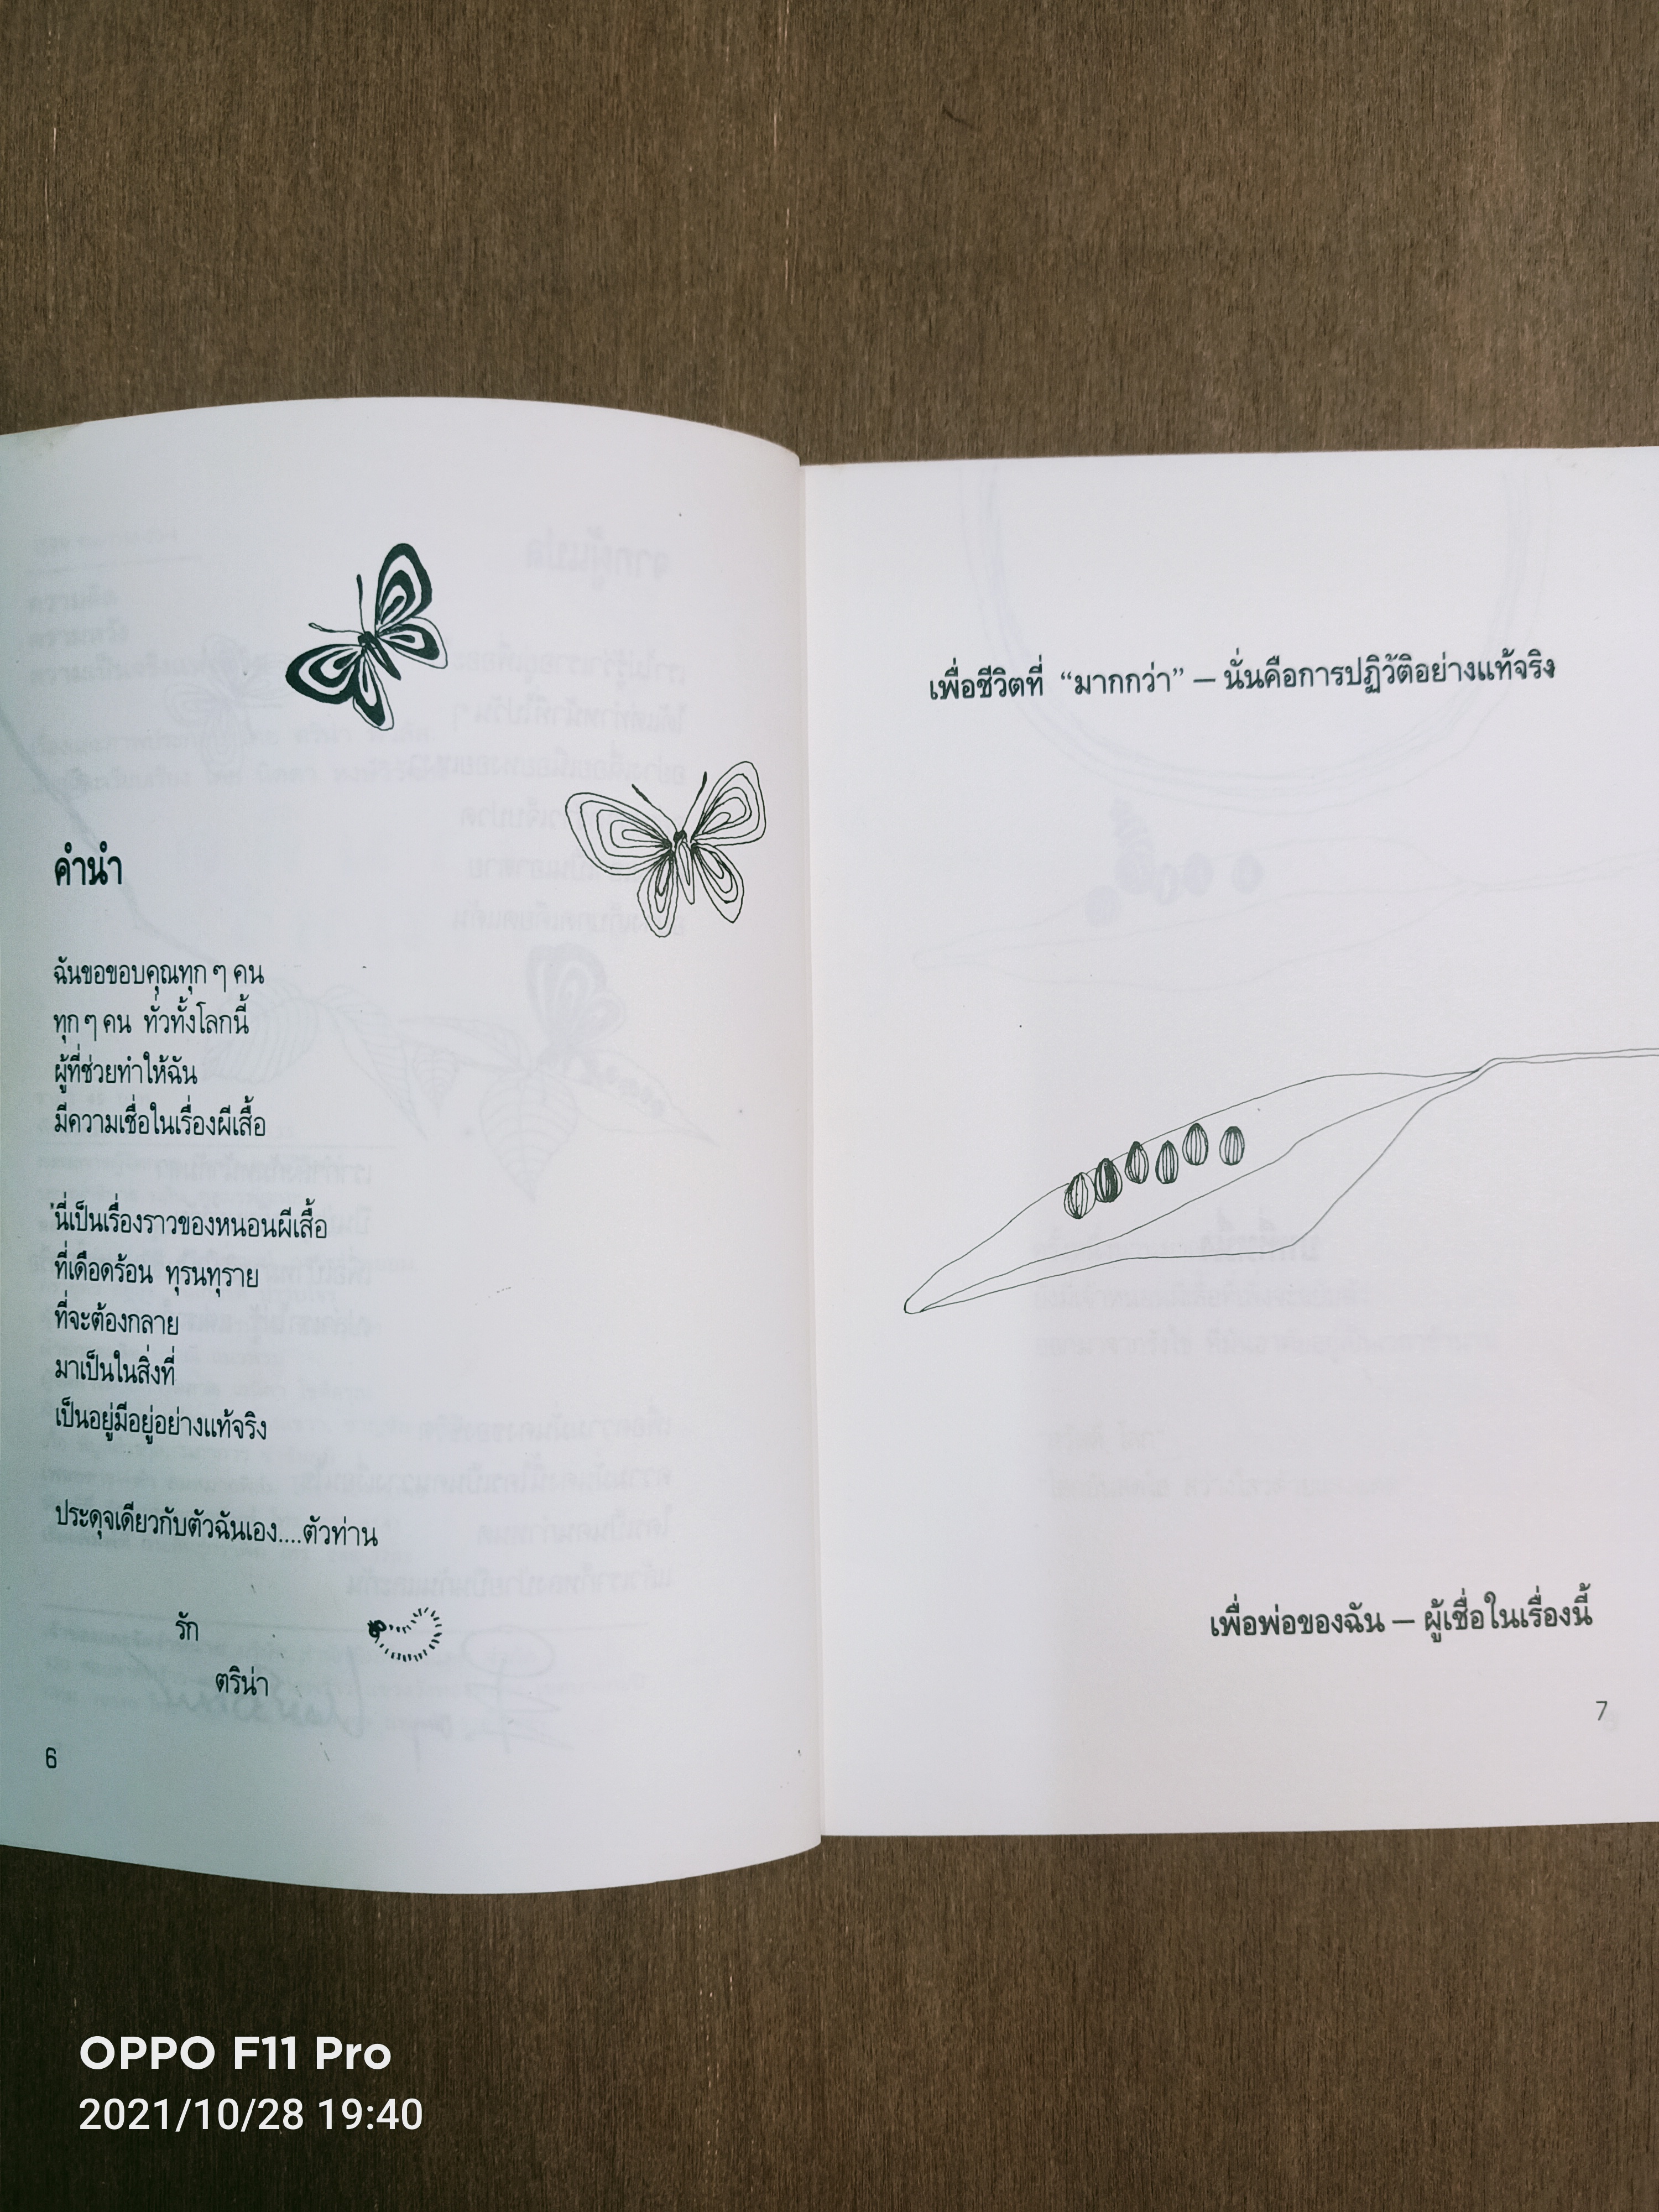 คำนำ
ฉันขอขอบคุณทุก ๆ คน
ทุก ๆ คน ทั่วทั้งโลกนี้
ผู้ที่ช่วยทำให้ฉัน
มีความเชื่อในเรื่องผีเสื้อ
นี่เป็นเรื่องราวของหนอนผีเสื้อ
ที่เดือดร้อน ทุรนทุราย
ที่จะต้องกลาย
มาเป็นในสิ่งที่
เป็นอยู่มีอยู่อย่างแท้จริง
ประดุจเดียวกับตัวฉันเอง....ตัวท่าน
รัก
ตริน่า
6
เพื่อชีวิตที่ “มากกว่า” — นั่นคือการปฏิวัติอย่างแท้จริง
เพื่อพ่อของฉัน — ผู้เชื่อในเรื่องนี้
7
OPPO F11 Pro
2021/10/28 19:40